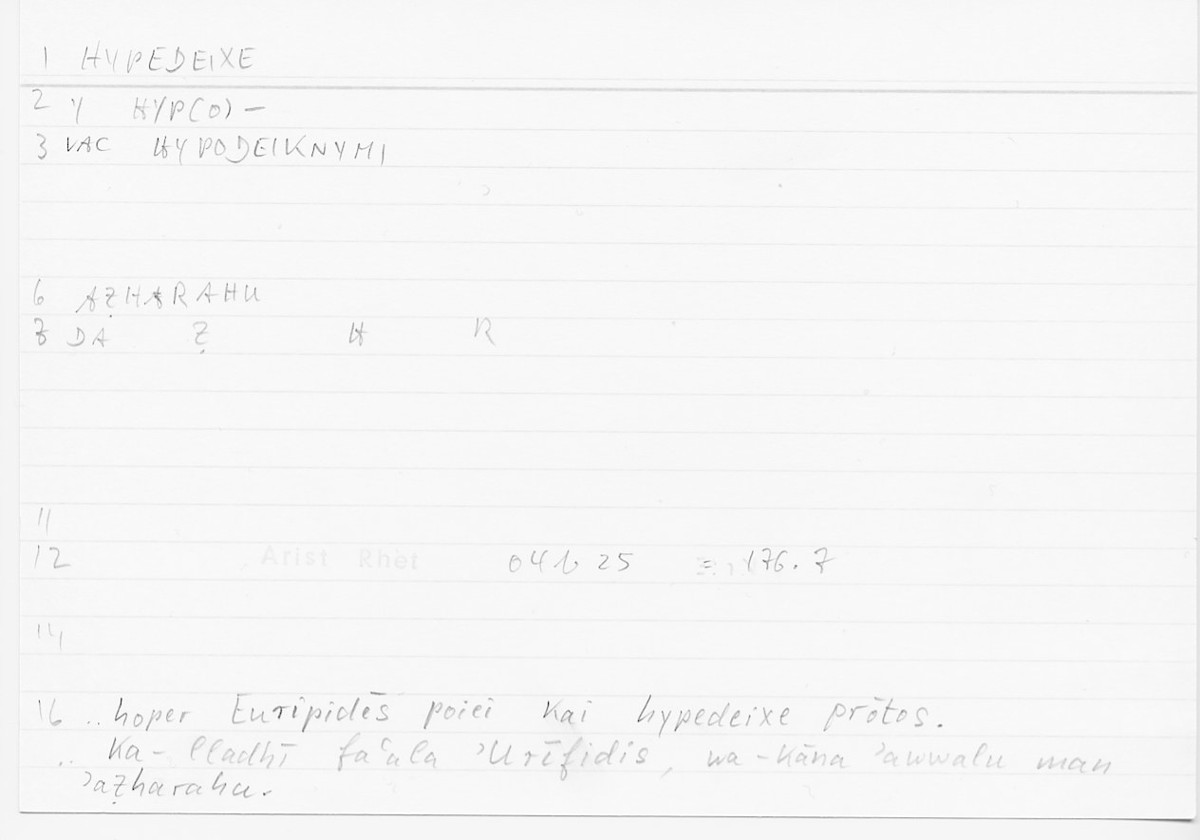 1 HYPEDEIXE
2 Y HYP(O) –
3 VAC HYPODEIKNYMI
6 AẒHARAHU
7 DA Ẓ H R
11
12 Arist Rhet 04b 25 = 176.7
14
16 .. hoper Euripidēs poiei kai hypedeixe prōtos.
.. Ka-lladhī faʿala ʾUrīfidis, wa-kāna ʾawwalu man
ʾaẓharahu.